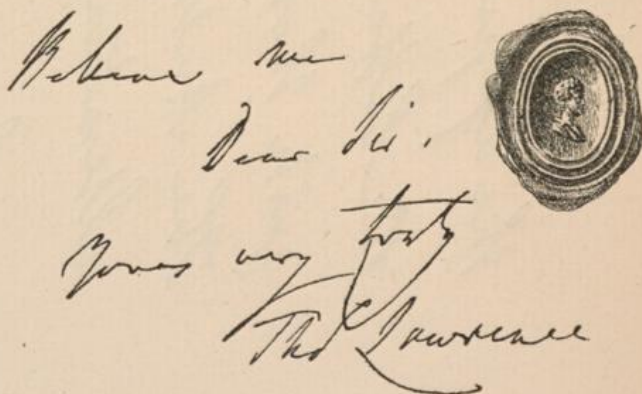 Believe me
Dear Sir.
Yours very truly
Thos Lawrence